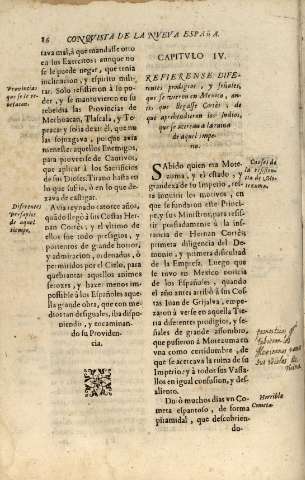 86 CONQVISTA DE LA NVEVA ESPAÑA.
tava mal, à que mandasse otro
en los Exercitos; aunque no
se le puede negar, que tenia
inclinacion, y espiritu mili-
tar. Solo resistieron à su po-
der, y se mantuvieron en su
rebeldia las Provincias de
Mechoacan, Tlascala, y Te-
peaca: y solia dezir èl, que no
las sojuzgava, porque avia
menester aquellos Enemigos,
para proveerse de Cautivos,
que aplicar à los Sacrificios
de sus Dioses. Tirano hasta en
lo que sufriò, ò en lo que de-
xava de castigar.
Avia reynado catorze años,
quãdo llegò à sus Costas Hernan
Cortès, y el vltimo de
ellos fue todo presagios, y
portentos de grande horror,
y admiracion, ordenados, ò
permitidos por el Cielo, para
quebrantar aquellos animos
feroces, y hazer menos im-
possible à los Españoles aque-
lla grande obra, que con me-
dios tan desiguales, iba dispo-
niendo, y encaminan-
do su Providen-
cia.
Provincias
que se le re-
belaron.
Diferentes
Presagios
de aquel
tiempo.
CAPITULO IV.
REFIERENSE DIFE-
rentes prodigios, y señales,
que se vieron en Mexico, an-
tes que llegasse Cortès; de
que aprehendieron los Indios,
que se acercava la ruina
de aquel Impe-
rio.
SAbido quien era Mote-
zuma, y el estado, y
grandeza de su Imperio, resta
inquirir los motivos, en
que se fundaron este Princi-
pe, y sus Ministros, para resis-
tir porfiadamente à la ins-
tancia de Hernan Cortès:
primera diligencia del De-
monio, y primera dificultad
de la Empresa. Luego que
se tuvo en Mexico noticia
de los Españoles, quando
el año antes arribò à sus Cos-
tas Iuan de Grijalva, empe-
zaron à verse en aquella Tie-
rra diferentes prodigios, y se-
ñales de grande assombro,
que pusieron à Motezuma en
vna como certidumbre, de
que se acercava la ruina de su
Imperio; y à todos sus Vassa-
llos en igual confusion, y de-
saliento.
Durò muchos dias vn Co-
meta espantoso, de forma
piramidal, que descubrien-
do-
Causas de
la resisten-
cia de Mo-
tezuma.
Horrible
Cometa.